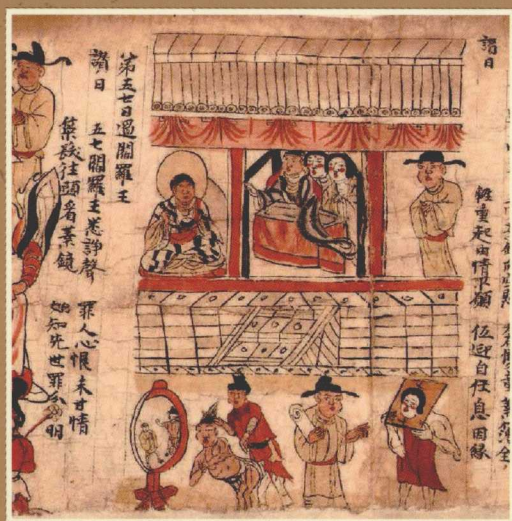 讃曰
左右雙童業簿全
輕重起由情所願 伍迎自任息因緣
第五七日過閻羅王
讃曰 五七閻羅王悉諍聲 罪人心恨未甘情
策髮往頭看業鏡 始知先世罪分明